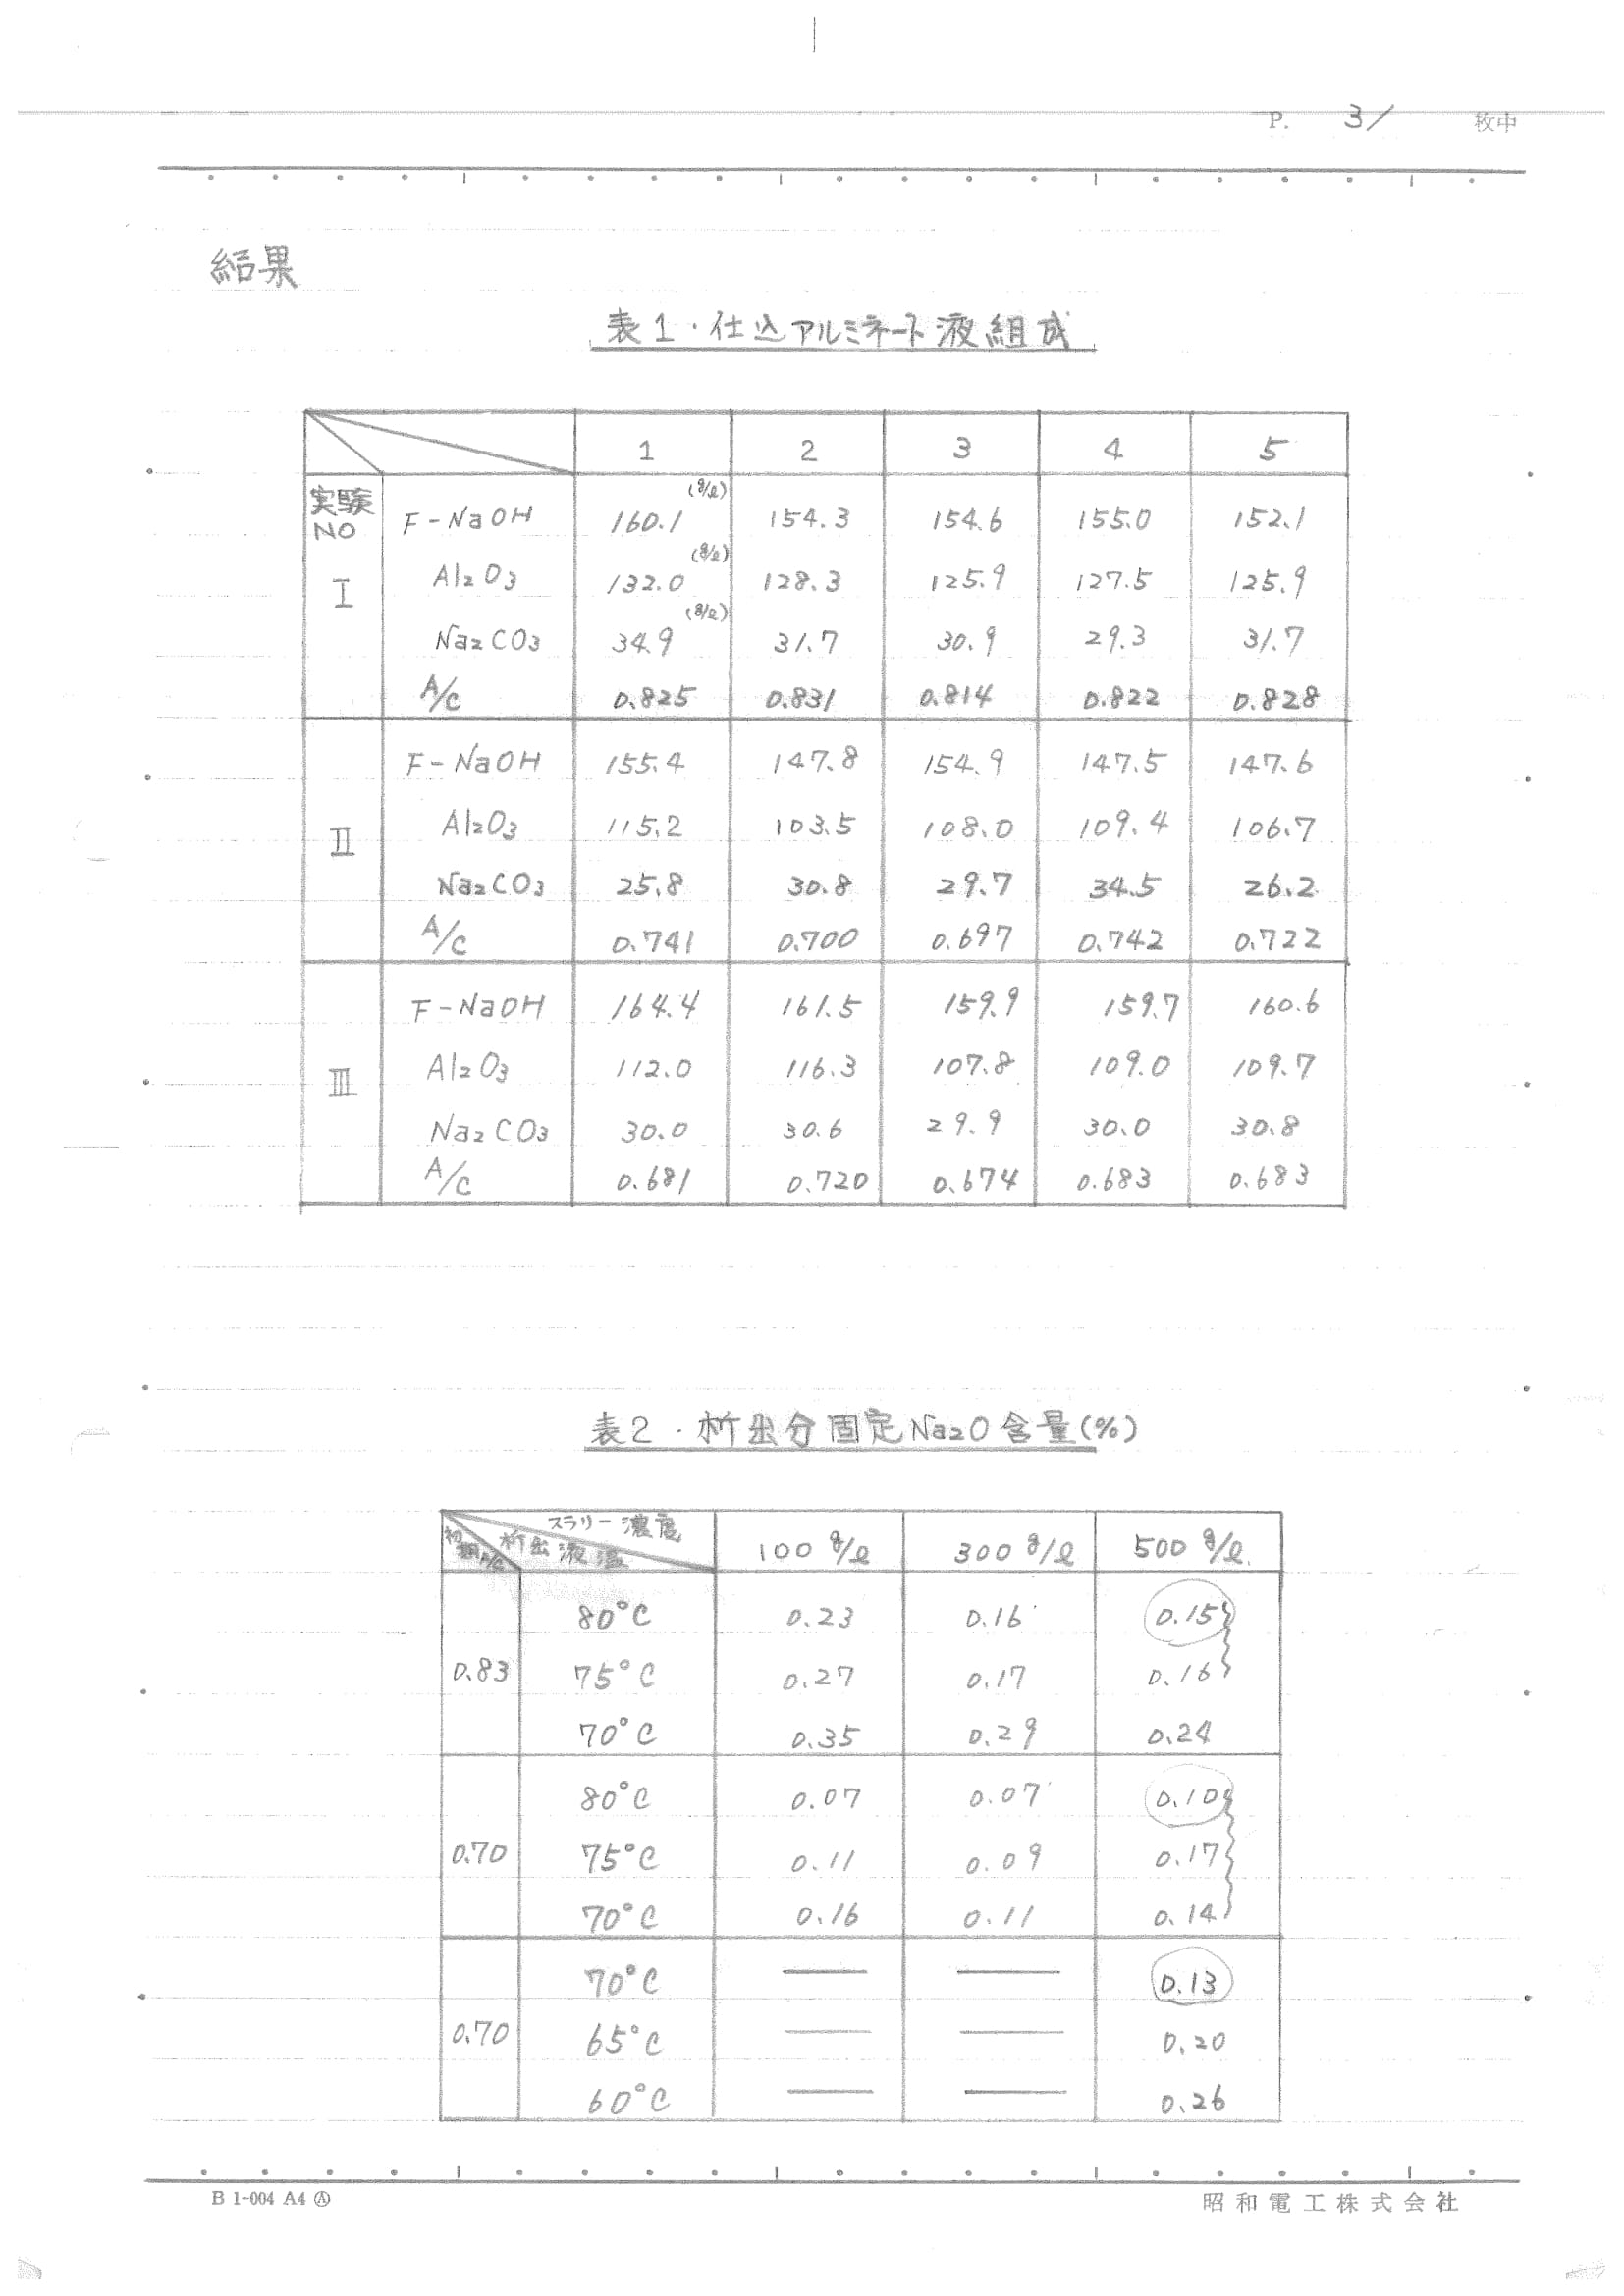 P. 3/ 枚中
結果
表1・仕込アルミネート液組成
1 2 3 4 5
実験NO I F-NaOH 160.1 (g/l) 154.3 154.6 155.0 152.1
Al₂O₃ 132.0 (g/l) 128.3 125.9 127.5 125.9
Na₂CO₃ 34.9 (g/l) 31.7 30.9 29.3 31.7
A/C 0.825 0.831 0.814 0.822 0.828
II F-NaOH 155.4 147.8 154.9 147.5 147.6
Al₂O₃ 115.2 103.5 108.0 109.4 106.7
Na₂CO₃ 25.8 30.8 29.7 34.5 26.2
A/C 0.741 0.700 0.697 0.742 0.722
III F-NaOH 164.4 161.5 159.9 159.7 160.6
Al₂O₃ 112.0 116.3 107.8 109.0 109.7
Na₂CO₃ 30.0 30.6 29.9 30.0 30.8
A/C 0.681 0.720 0.674 0.683 0.683
表2・析出分固定Na₂O含量(%)
初期A/C 析出液温 スラリー濃度 100 g/l 300 g/l 500 g/l
0.83 80°C 0.23 0.16 0.15
75°C 0.27 0.17 0.16
70°C 0.35 0.29 0.24
0.70 80°C 0.07 0.07 0.10
75°C 0.11 0.09 0.17
70°C 0.16 0.11 0.14
0.70 70°C — — 0.13
65°C — — 0.20
60°C — — 0.26
B 1-004 A4 Ⓐ 昭和電工株式会社